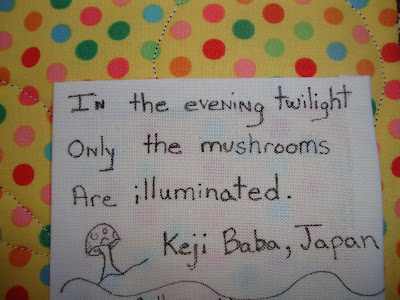 In the evening twilight
Only the mushrooms
Are illuminated.
Keji Baba, Japan